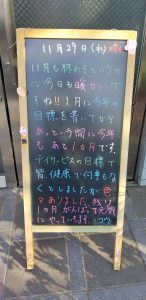 11月29日(水)晴
11月も終わるというの
に今日も暖かいで
すね!!1月に今年の
目標を書いてから
あっという間に今年
もあと1ヵ月です。
デイサービスの目標で
皆、健康で何事もな
くとしましたが色
々ありました。残り
1ヵ月がんばって元気
にやっていきます。